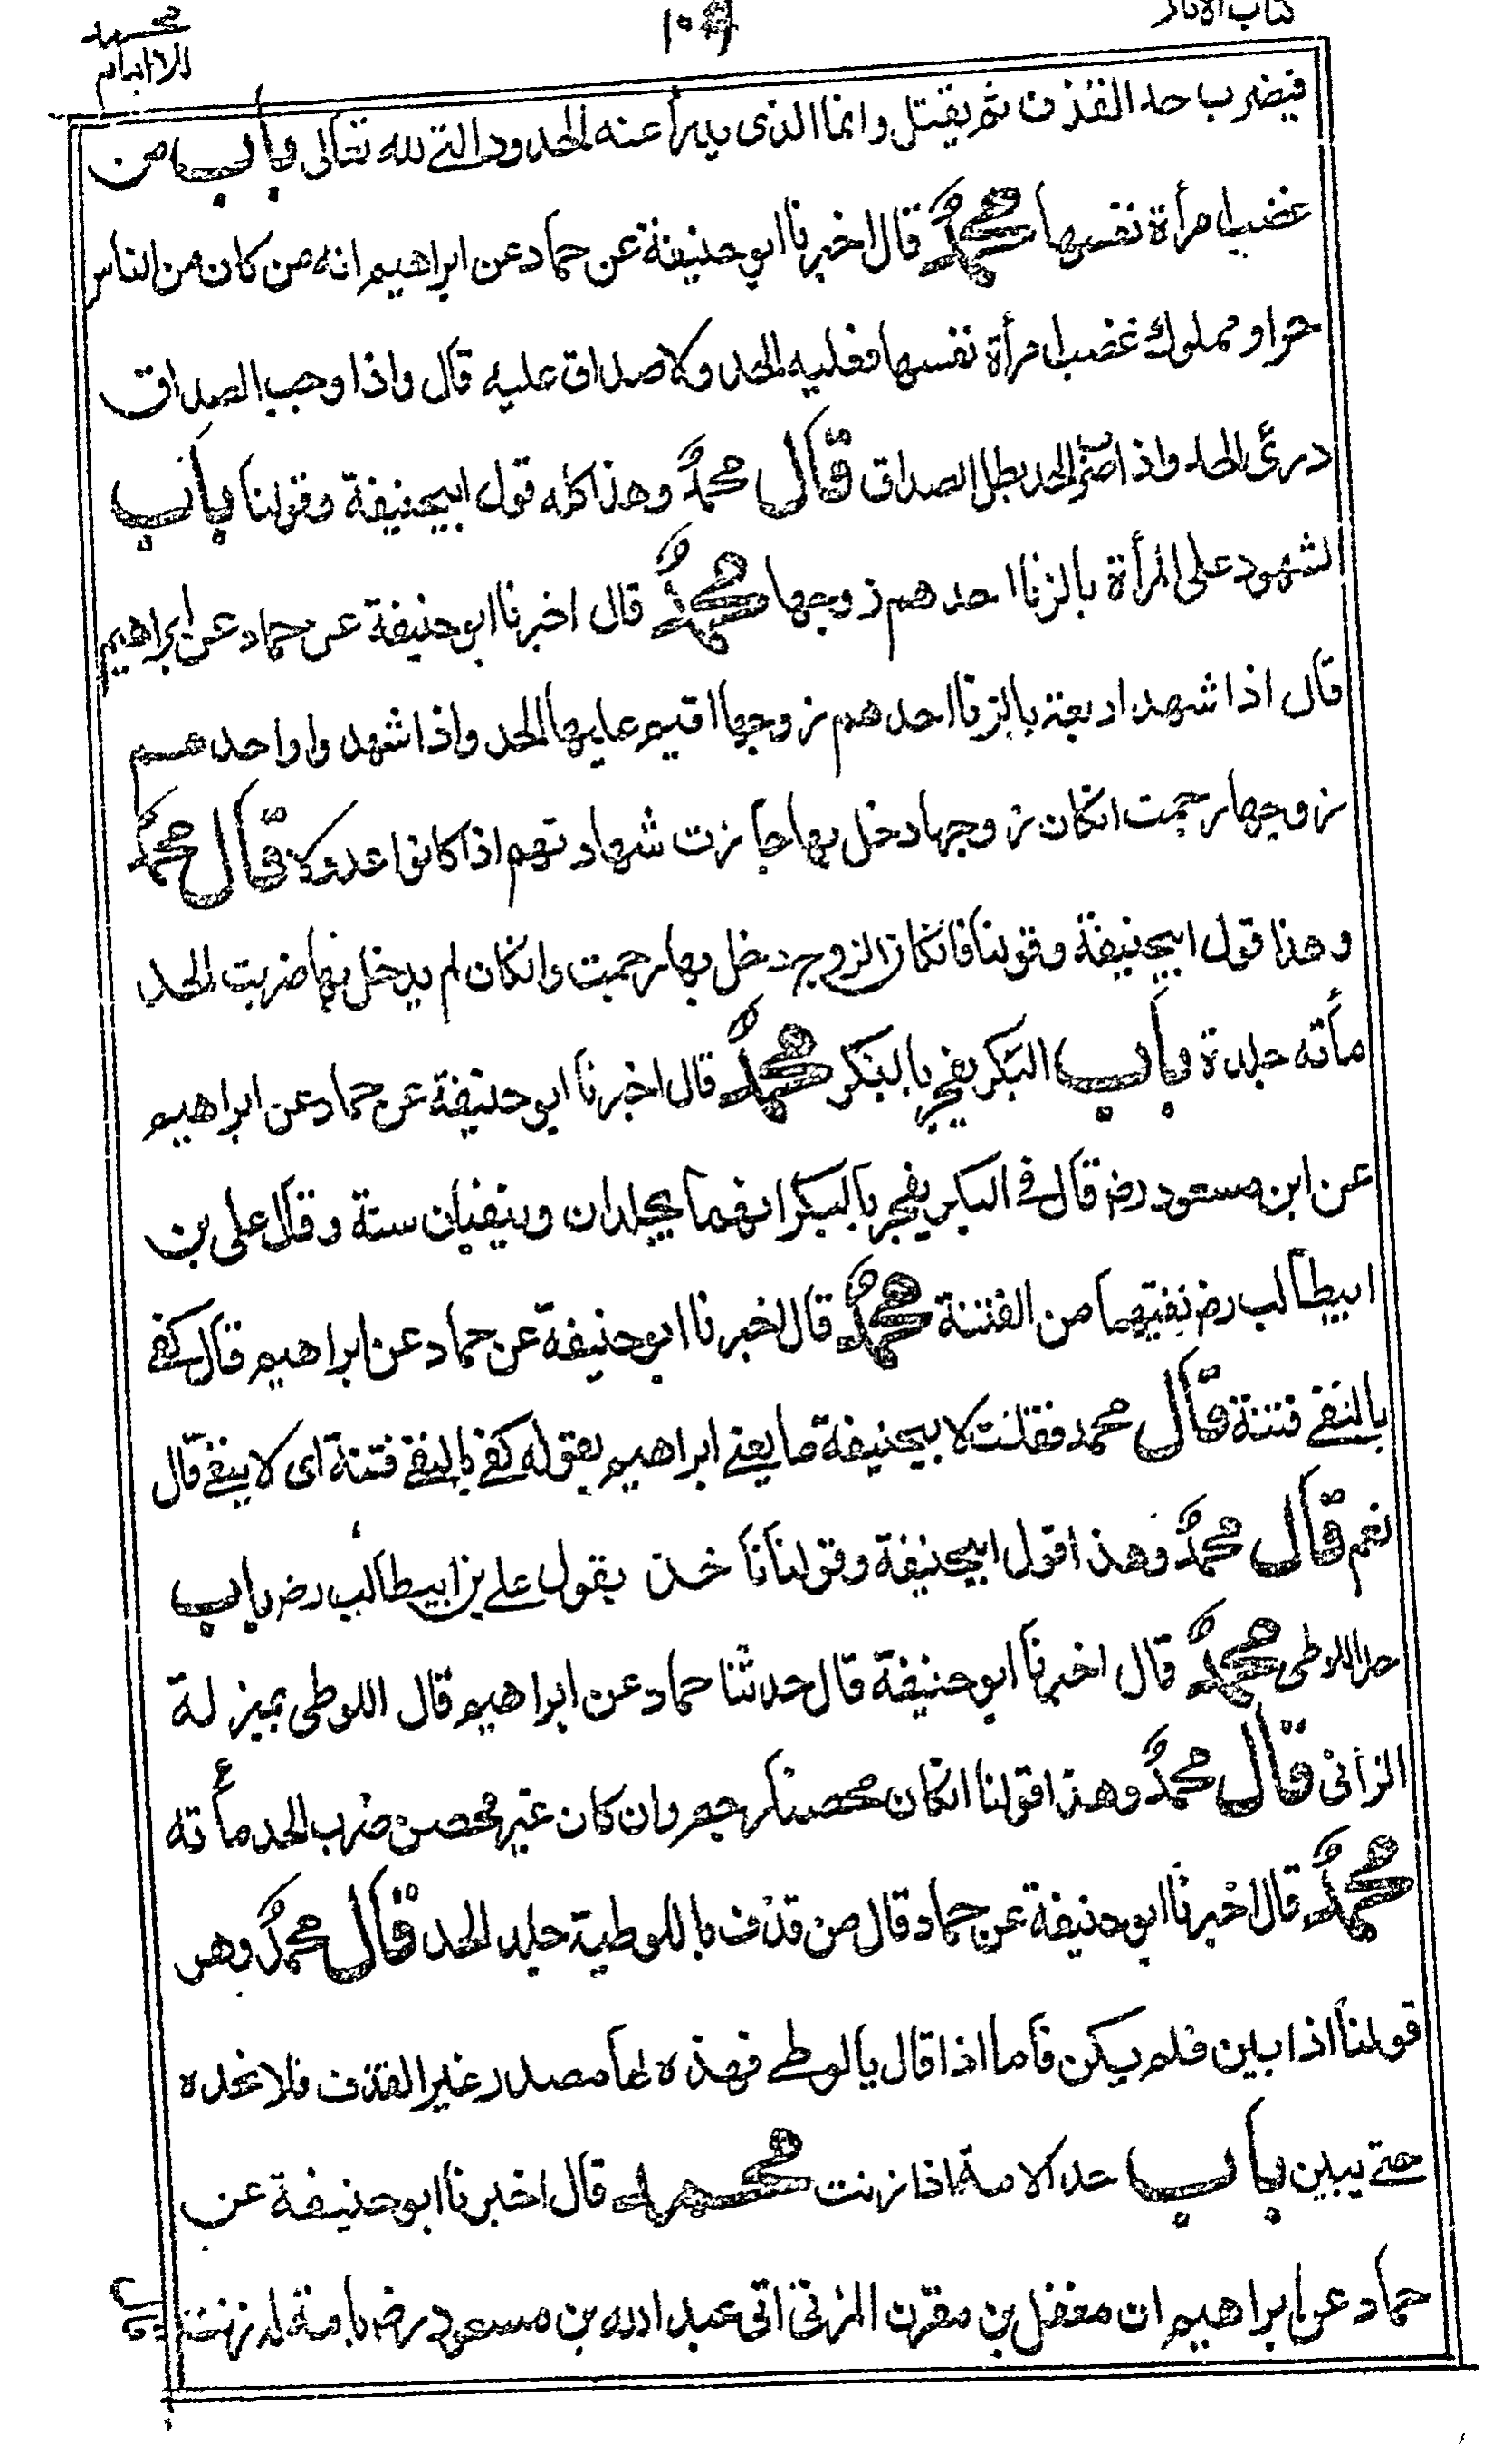 كتاب الآثار
للامام محمد
فيضرب حد القذف ثم يقتل وانما الذى يدرأ عنه الحدود التى لله تعالى باب من
غصب امرأة نفسها محمد قال اخبرنا ابو حنيفة عن حماد عن ابراهيم انه من كان من الناس
حرا او مملوك غصب امرأة نفسها فعليه الحد ولا صداق عليه قال واذا وجب الصداق
درئ الحد واذا ضرب الحد بطل الصداق قال محمد وهذا كله قول ابيحنيفة وقولنا باب
الشهود على المرأة بالزنا احدهم زوجها محمد قال اخبرنا ابو حنيفة عن حماد عن ابراهيم
قال اذا شهد اربعة بالزنا احدهم زوجها اقيم عليها الحد واذا شهدوا واحدهم
زوجها رجمت انكان زوجها دخل بها جازت شهادتهم اذا كانوا عدولا قال محمد
وهذا قول ابيحنيفة وقولنا فانكان الزوج دخل بها رجمت وانكان لم يدخل بها ضربت الحد
مأته جلدة باب البكر يفجر بالبكر محمد قال اخبرنا ابو حنيفة عن حماد عن ابراهيم
عن ابن مسعود رض قال فى البكر يفجر بالبكر انهما يجلدان وينفيان سنة وقال على بن
ابيطالب رض نفيهما من الفتنة محمد قال اخبرنا ابو حنيفة عن حماد عن ابراهيم قال كفى
بالنفى فتنة قال محمد فقلت لابيحنيفة ما يعنى ابراهيم بقوله كفى بالنفى فتنة اى لا ينفى قال
نعم قال محمد وهذا قول ابيحنيفة وقولنا ناخذ بقول على بن ابيطالب رض باب
حد اللوطى محمد قال اخبرنا ابو حنيفة قال حدثنا حماد عن ابراهيم قال اللوطى بمنزلة
الزانى قال محمد وهذا قولنا انكان محصنا رجم وان كان غير محصن ضرب الحد مأته
محمد قال اخبرنا ابو حنيفة عن حماد قال من قذف باللوطية جلد الحد قال محمد وهو
قولنا اذا بين فلم يكن فاما اذا قال يا لوطى فهذه لها مصدر غير القذف فلا نحده
حتى يبين باب حد الامة اذا زنت محمد قال اخبرنا ابو حنيفة عن
حماد عن ابراهيم ان معقل بن مقرن المزنى اتى عبد الله بن مسعود رض بامة له زنت